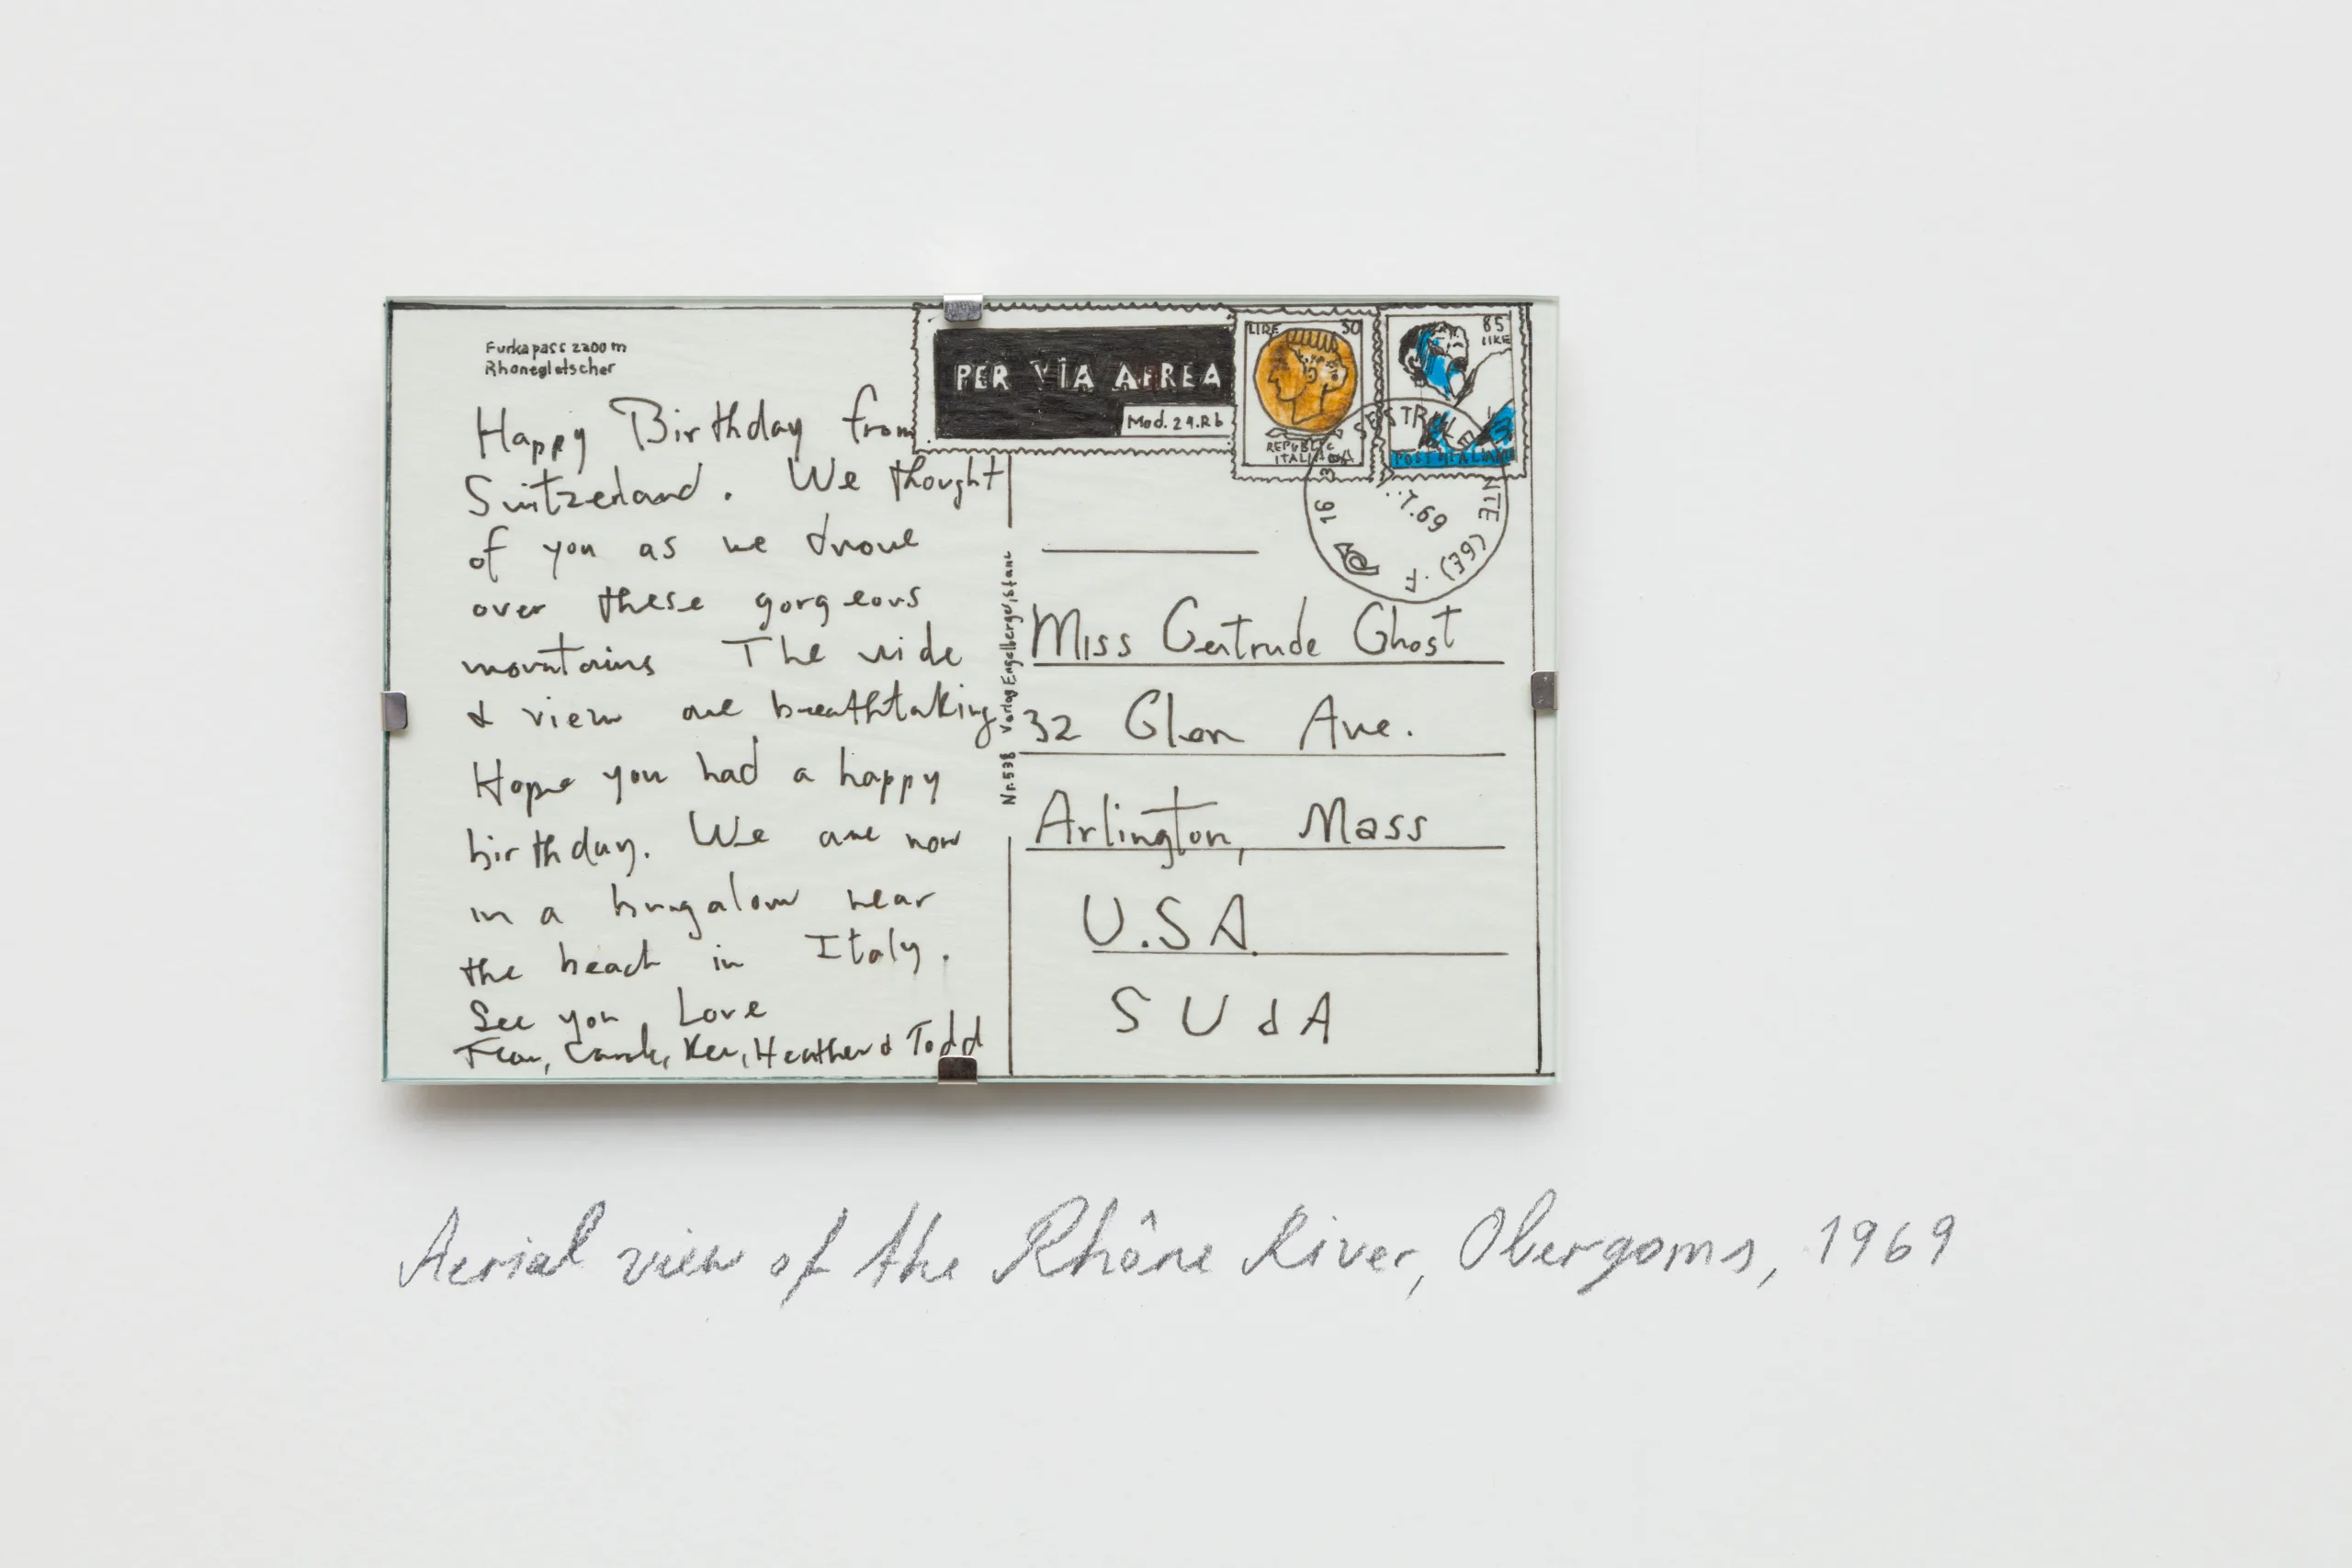 Furkapass 2200 m
Rhonegletscher
Happy Birthday from
Switzerland. We thought
of you as we drove
over these gorgeous
mountains The ride
& view are breathtaking
Hope you had a happy
birthday. We are now
in a bungalow near
the beach in Italy.
See you Love
Ken, Heather & Todd
Nr. 538 Verlag Engelberger, Stans
PER VIA AEREA
Mod. 24.Rb
LIRE 50
REPUBBLICA
ITALIANA
85
LIRE
POSTE ITALIANE
SESTRI LEVANTE (GE)
.7.69
16
Miss Gertrude Ghost
32 Glen Ave.
Arlington, Mass
U.S.A.
S U d A
Aerial view of the Rhône River, Obergoms, 1969